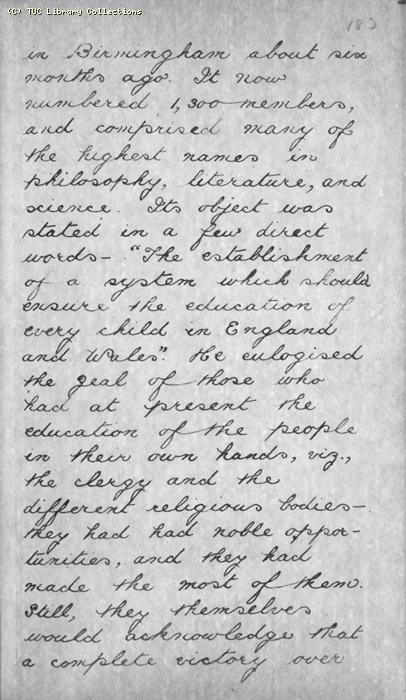 (C) TUC Library Collections
183
in Birmingham about six
months ago. It now
numbered 1,300 members,
and comprised many of
the highest names in
philosophy, literature, and
science. Its object was
stated in a few direct
words - "The establishment
of a system which should
ensure the education of
every child in England
and Wales". He eulogised
the zeal of those who
had at present the
education of the people
in their own hands, viz.,
the clergy and the
different religious bodies -
they had had noble oppor-
tunities, and they had
made the most of them.
Still, they themselves
would acknowledge that
a complete victory over